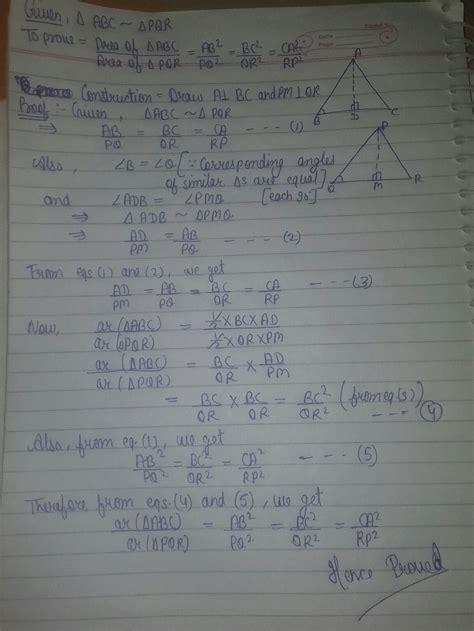 Given, Δ ABC ~ Δ PQR
To prove = Area of Δ ABC / Area of Δ PQR = AB²/PQ² = BC²/QR² = CA²/RP²
Construction = Draw A⊥ BC and PM ⊥ QR
Proof :- Given, ΔABC ~ Δ PQR
⇒ AB/PQ = BC/QR = CA/RP --- (1)
Also, ∠B = ∠Q [∵ Corresponding angles
of similar Δs are equal]
and ∠ADB = ∠PMQ [each 90°]
⇒ Δ ADB ~ ΔPMQ
⇒ AD/PM = AB/PQ --- (2)
From eqs (1) and (2), we get
AD/PM = AB/PQ = BC/QR = CA/RP --- (3)
Now, ar(ΔABC)/ar(ΔPQR) = ½ × BC × AD / ½ × QR × PM
ar(ΔABC)/ar(ΔPQR) = BC/QR × AD/PM
= BC/QR × BC/QR = BC²/QR² (from eq(3)) --- (4)
Also, from eq.(1), we get
AB²/PQ² = BC²/QR² = CA²/RP² --- (5)
Therefore from eqs. (4) and (5), we get
ar(ΔABC)/ar(ΔPQR) = AB²/PQ² = BC²/QR² = CA²/RP²
Hence Proved
A
B
D
C
P
Q
M
R